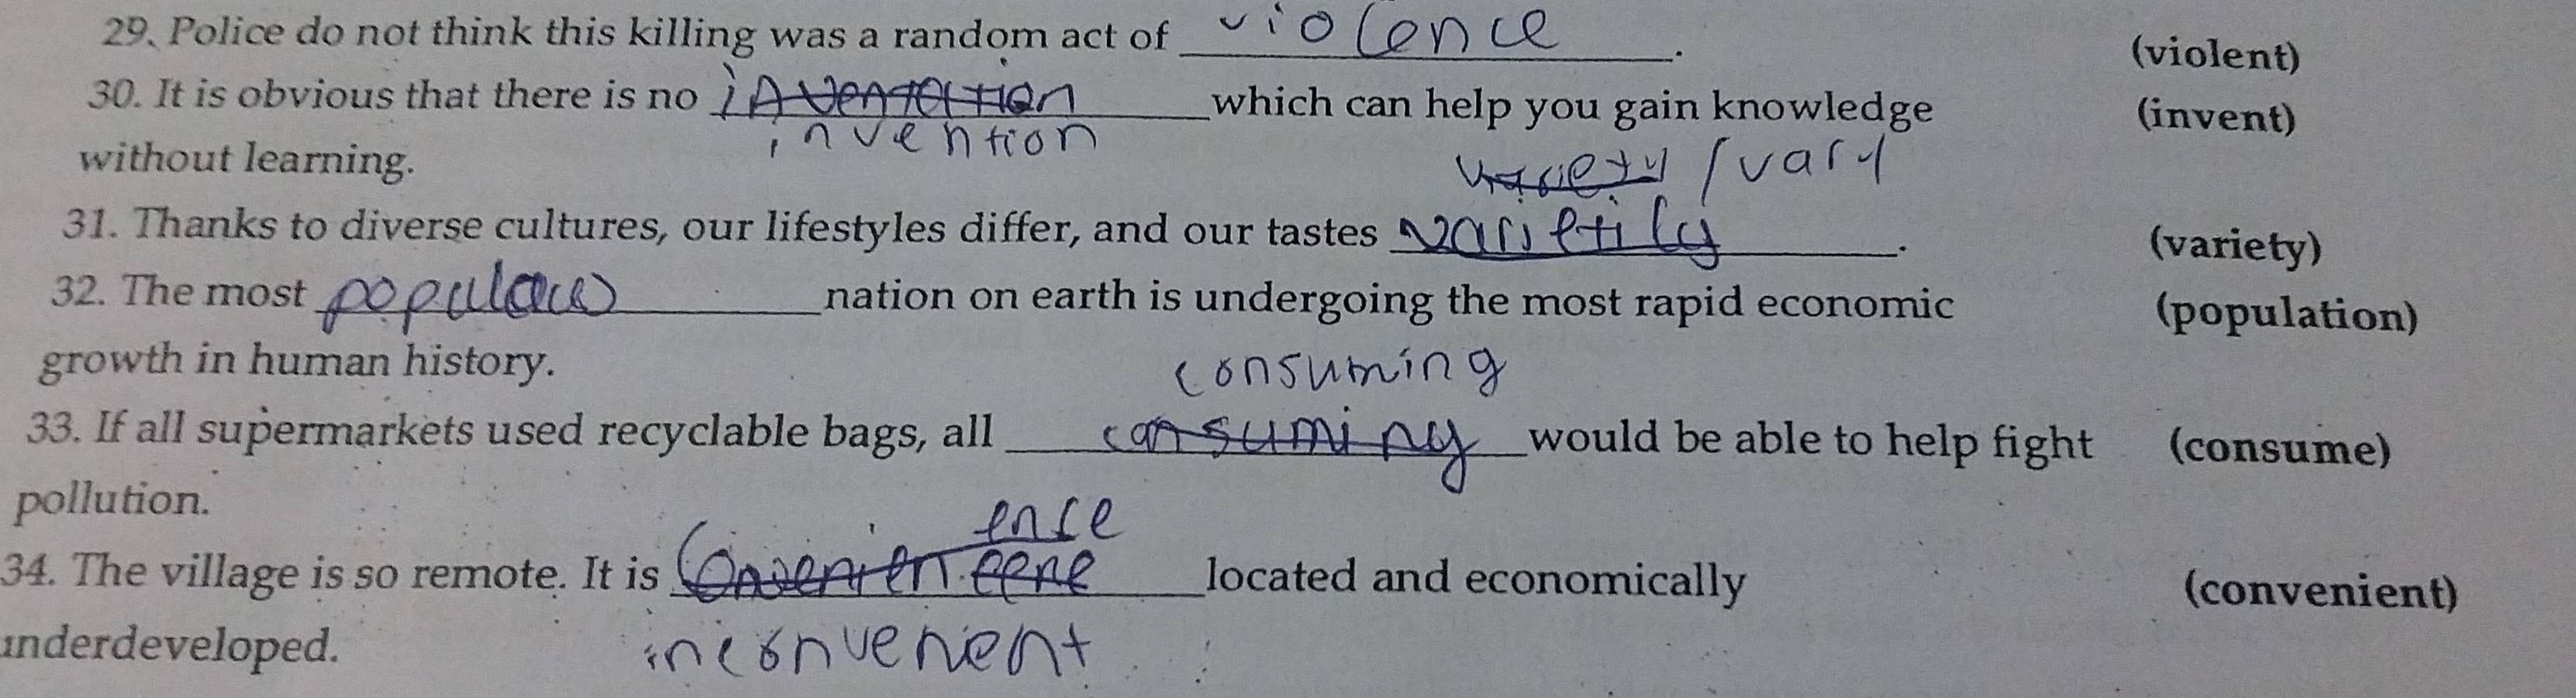 29. Police do not think this killing was a random act of violence. (violent)
30. It is obvious that there is no inventation which can help you gain knowledge (invent)
invention
without learning.
variety / vary
31. Thanks to diverse cultures, our lifestyles differ, and our tastes varietily. (variety)
32. The most nation on earth is undergoing the most rapid economic (population)
growth in human history.
consuming
33. If all supermarkets used recyclable bags, all consuming would be able to help fight (consume)
pollution.
ence
34. The village is so remote. It is located and economically (convenient)
underdeveloped.
inconvenient